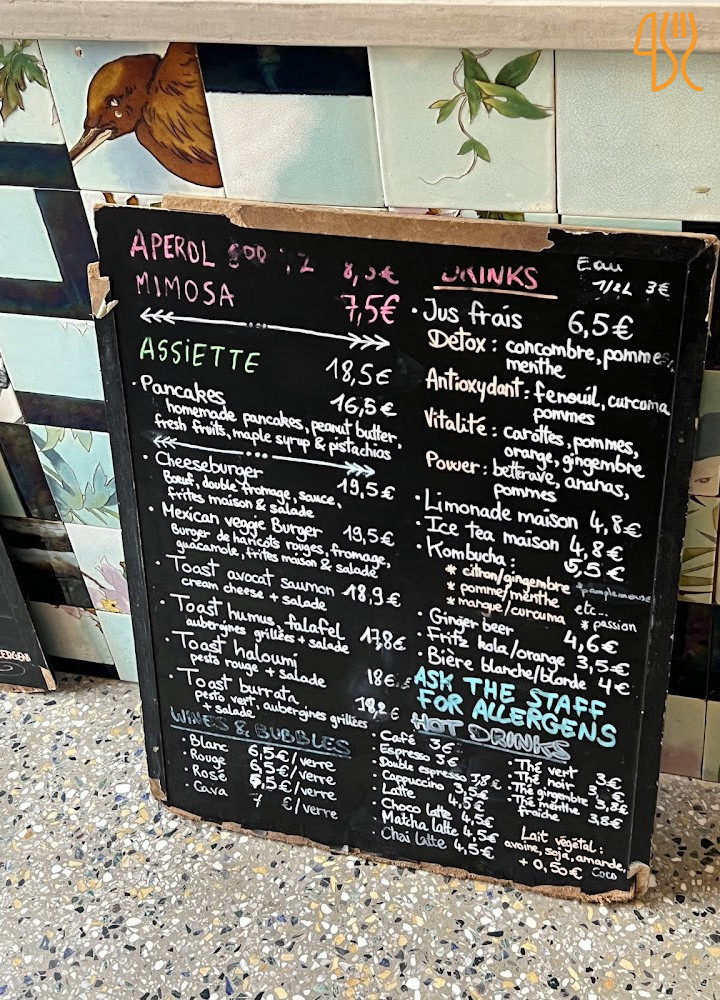 APEROL
MIMOSA 7,5€
ASSIETTE 18,5€
• Pancakes 16,5€
homemade pancakes, peanut butter,
fresh fruits, maple syrup & pistachios
• Cheeseburger 19,5€
Bœuf, double fromage, sauce,
frites maison & salade
• Mexican veggie Burger 19,5€
Burger de haricots rouges, fromage,
guacamole, frites maison & salade
• Toast avocat saumon 18,9€
cream cheese + salade
• Toast humus, falafel 17,8€
aubergines grillées + salade
• Toast haloumi 18€
pesto rouge + salade
• Toast burrata 18,2€
pesto vert, aubergines grillées
+ salade
WINES & BUBBLES
• Blanc 6,5€/verre
• Rouge 6,5€/verre
• Rosé 6,5€/verre
• Cava 7 €/verre
DRINKS
Eau
1/2L 3€
• Jus frais 6,5€
Detox : concombre, pommes,
menthe
Antioxydant : fenouil, curcuma
pommes
Vitalité : carottes, pommes,
orange, gingembre
Power : betterave, ananas,
pommes
• Limonade maison 4,8€
• Ice tea maison 4,8€
• Kombucha : 5,5€
* citron/gingembre *pamplemousse
* pomme/menthe etc...
* mangue/curcuma * passion
• Ginger beer 4,6€
• Fritz kola/orange 3,5€
• Bière blanche/blonde 4€
ASK THE STAFF
FOR ALLERGENS
HOT DRINKS
• Café 3€
• Espresso 3€
• Double espresso 3,8€
• Cappuccino 3,5€
• Latte 4,5€
• Choco latte 4,5€
• Matcha latte 4,5€
• Chai latte 4,5€
• Thé vert 3€
• Thé noir 3€
• Thé gingembre 3,8€
• Thé menthe
fraîche 3,8€
Lait végétal :
avoine, soja, amande,
+ 0,50€ coco